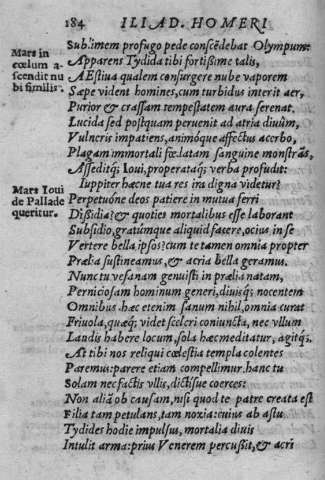 184 ILIAD. HOMERI
Mars in
cœlum a-
scendit nu
bi similis.
Mars Ioui
de Pallade
queritur.
Sublimem profugo pede conscēdebat Olympum:
Apparens Tydida tibi fortissime talis,
AEstiua qualem consurgere nube vaporem
Sæpe vident homines, cum turbidus interit aer,
Purior & crassam tempestatem aura serenat.
Lucida sed postquam peruenit ad atria diuûm,
Vulneris impatiens, animóque affectus acerbo,
Plagam immortali fœdatam sanguine monstrās,
Asseditq; Ioui, properataq; verba profudit:
Iuppiter hæcne tua res ira digna videtur?
Perpetuóne deos patiere in mutua ferri
Dissidia? & quoties mortalibus esse laborant
Subsidio, gratúmque aliquid facere, ocius in se
Vertere bella ipsos? cum te tamen omnia propter
Prælia sustineamus, & acria bella geramus.
Nunc tu vesanam genuisti in prælia natam,
Perniciosam hominum generi, diuisq; nocentem
Omnibus. hæc etenim sanum nihil, omnia curat
Friuola, quæq; videt sceleri coniuncta, nec vllum
Landis habere locum, sola hæc meditatur, agitq;.
At tibi nos reliqui cœlestia templa colentes
Paremus: parere etiam compellimur. hanc tu
Solam nec factis vllis, dictisue coerces:
Non aliā ob causam, nisi quod te patre creata est
Filia tam petulans, tam noxia: cuius ab astu
Tydides hodie impulsus, mortalia diuis
Intulit arma: prius Venerem percussit, & acri